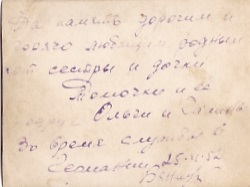 На память дорогим и
горячо любящим родным
от сестры и дочки
Томочки и ее
Ольги и
Во время службы в
Германии 25